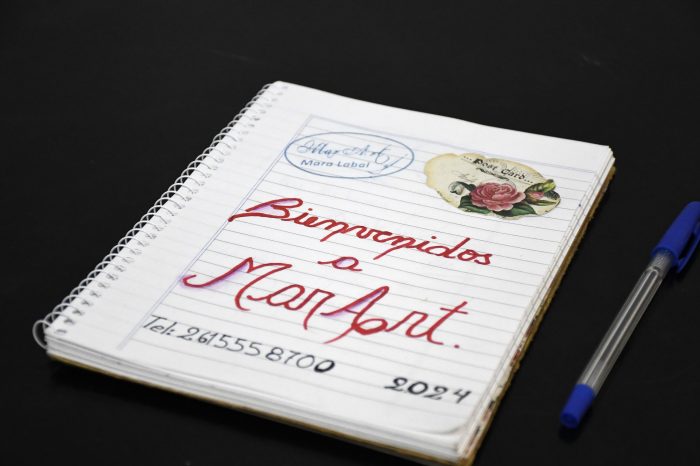 Mar Art
Mara Labal
...Post Card...
Bienvenidos
a
MarArt.
Tel: 2615558700
2024